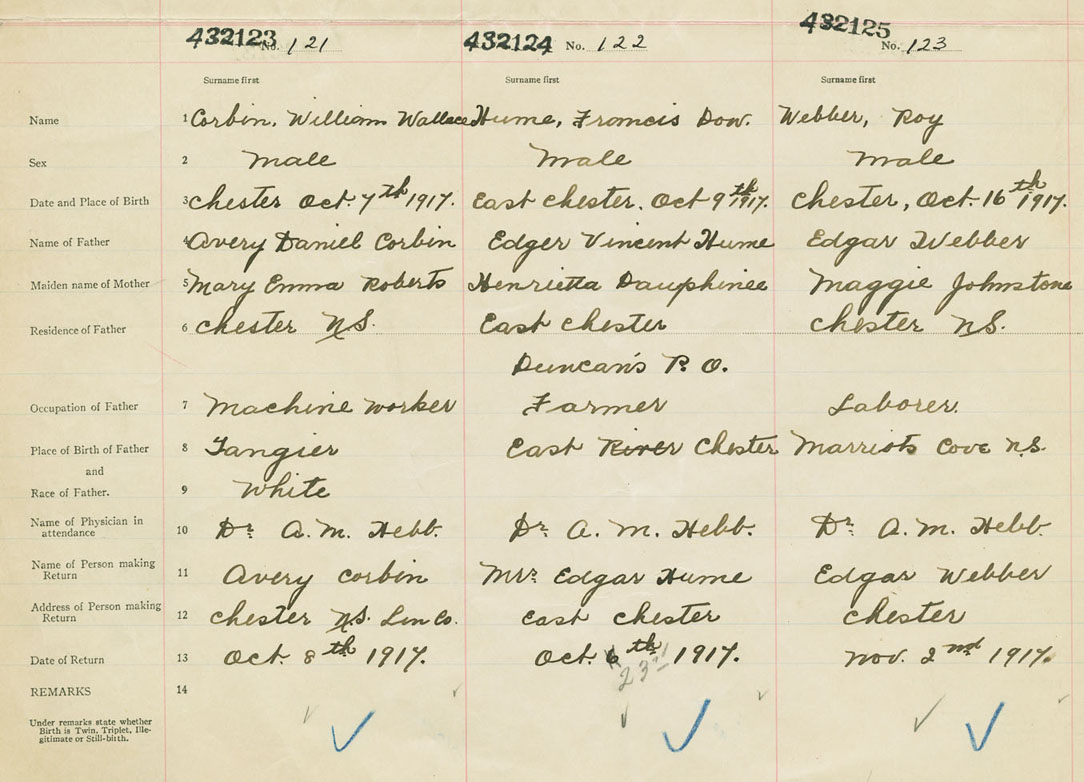 432123 No. 121 432124 No. 122 432125 No. 123
Surname first Surname first Surname first
Name 1 Corbin, William Wallace Hume, Francis Dow. Webber, Roy
Sex 2 male Male male
Date and Place of Birth 3 Chester Oct. 7th 1917. East Chester, Oct 9th 1917. Chester, Oct. 16th 1917.
Name of Father 4 Avery Daniel Corbin Edger Vincent Hume Edgar Webber
Maiden name of Mother 5 Mary Emma Roberts Henrietta Dauphinee Maggie Johnstone
Residence of Father 6 Chester N.S. East Chester Chester N.S.
Duncan's P.O.
Occupation of Father 7 Machine worker Farmer Laborer.
Place of Birth of Father 8 Tangier East River Chester Marriots Cove N.S.
and
Race of Father. 9 White
Name of Physician in
attendance 10 Dr. A.M. Hebb. Dr. A. M. Hebb. Dr. A.M. Hebb.
Name of Person making
Return 11 Avery Corbin Mrs. Edgar Hume Edgar Webber
Address of Person making
Return 12 Chester N.S. Lun Co. East Chester Chester
Date of Return 13 Oct. 8th 1917. Oct. 6th 1917. Nov. 2nd 1917.
23rd
REMARKS 14
Under remarks state whether
Birth is Twin, Triplet, Ille-
gitimate or Still-birth.